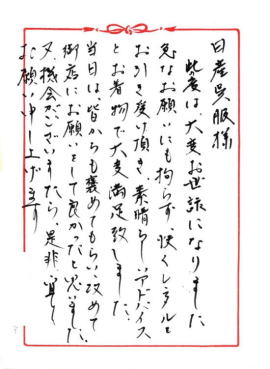 日産呉服様
此度は、大変お世話になりました。
急なお願いにも拘らず、快くレンタルを
お引き受け頂き、素晴らしいアドバイス
とお着物で大変満足致しました。
当日は、皆からも褒めてもらい、改めて
御店にお願いをして良かったと思いました。
又、機会がございましたら、是非、宜しく
お願い申し上げます